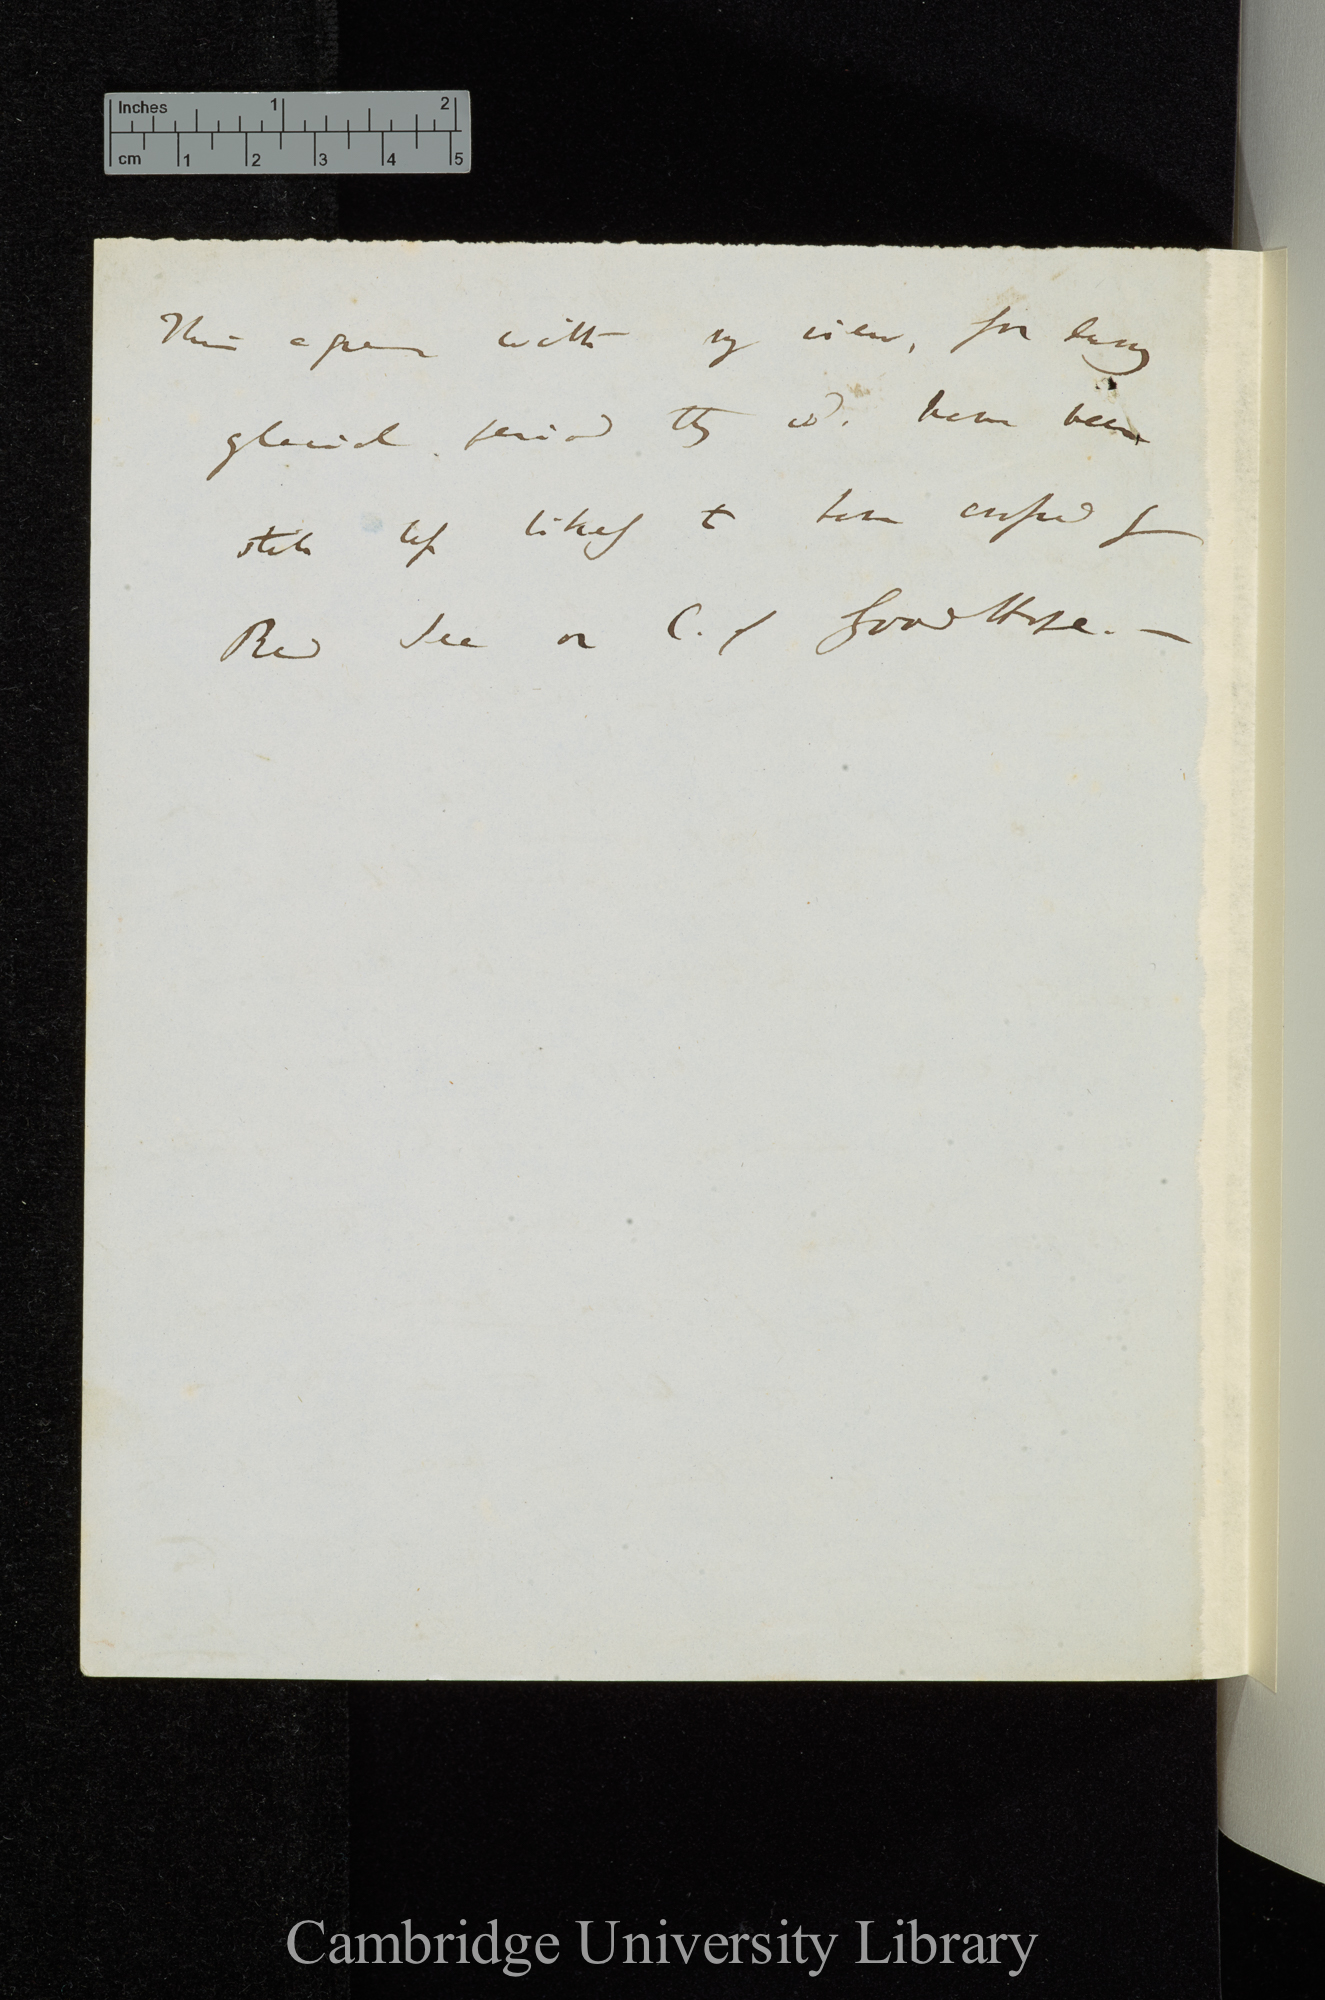 Inches 1 2
cm 1 2 3 4 5
This agrees with my view, for during
glacial period they wd. have been
still less likely to have crossed from
Red Sea or C. of Good Hope. —
Cambridge University Library